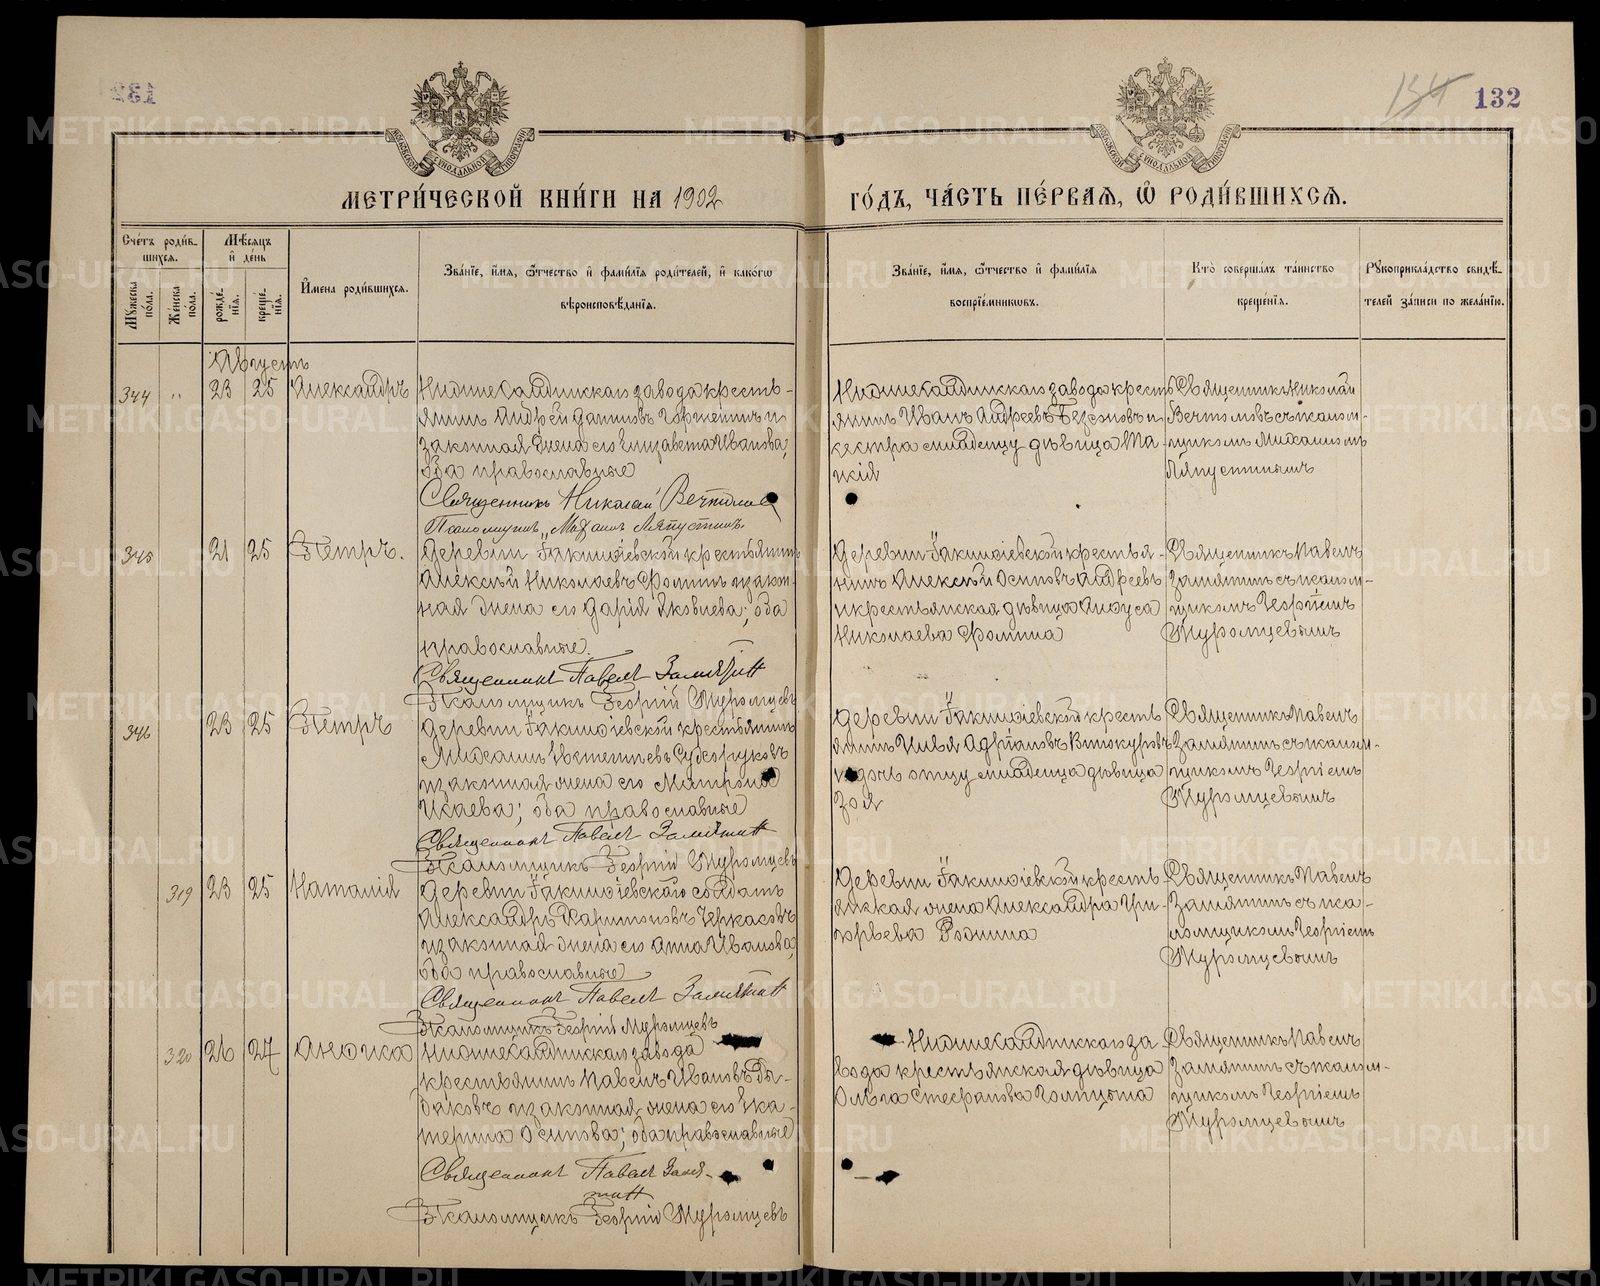 132
134 132
МЕТРИЧЕСКОЙ КНИГИ НА 1902 ГОДЪ, ЧАСТЬ ПЕРВАЯ, Ѿ РОДИВШИХСЯ.
Счетъ родившихся.
Мужеска пола.
Женска пола.
Мѣсяцъ и день
рожденія.
крещенія.
Имена родившихся.
Званіе, имя, ѻтчество и фамилія родителей, и какогѡ
вѣроисповѣданія.
Званіе, имя, ѻтчество и фамилія
воспріемникѡвъ.
Кто совершалъ таинство
крещенія.
Рукоприкладство свидѣ-
телей записи по желанію.
Августъ
344 " 23 25 Александръ
Нижнесалдинскаго завода кресть-
янинъ Андрей
законная жена его Елизавета Иванова,
оба православные
Священникъ Николай
Псаломщикъ Михаилъ Ляпустинъ
Нижнесалдинскаго завода кресть
янинъ Иванъ Андреевъ и
сестра младенцу дѣвица Ма-
Священникъ Николай
съ псалом-
щикомъ Михаиломъ
Ляпустинымъ
345 21 25 Петръ.
Деревни крестьянинъ
Алексѣй Николаевъ Фоминъ и закон
ная жена его Дарія Яковлева; оба
православные.
Священникъ Павелъ Замятин
Псаломщикъ Георгій Муромцевъ
Деревни крестья-
нинъ Алексѣй Осиповъ Андреевъ
и крестьянская дѣвица
Николаева Фомина
Священникъ Павелъ
Замятинъ съ псалом-
щикомъ Георгіемъ
Муромцевымъ
346 23 25 Петръ
Деревни крестьянинъ
Михаилъ Сухоруковъ
и законная жена его Матрона
Исаева; оба православные
Священникъ Павелъ Замятин
Псаломщикъ Георгій Муромцевъ
Деревни кресть
янинъ Илья Винокуровъ
и дочь отцу младенца дѣвица
Зоя
Священникъ Павелъ
Замятинъ съ псалом-
щикомъ Георгіемъ
Муромцевымъ
319 23 25 Наталія
Деревни солдатъ
Александръ Харитоновъ Черкасовъ
и законная жена его Анна Иванова,
оба православные
Священникъ Павелъ Замятин
Псаломщикъ Георгій Муромцевъ
Деревни кресть-
янская жена Александра Гри-
горьева Родина
Священникъ Павелъ
Замятинъ съ пса-
ломщикомъ Георгіемъ
Муромцевымъ
320 26 27 Анфиса
Нижнесалдинскаго завода
крестьянинъ Павелъ Ивановъ
и законная жена его Ека-
терина Осипова; оба православные
Священникъ Павелъ Замя-
тин
Псаломщикъ Георгій Муромцевъ
Нижнесалдинскаго за-
вода крестьянская дѣвица
Ольга Стефанова Голицына
Священникъ Павелъ
Замятинъ съ псалом-
щикомъ Георгіемъ
Муромцевымъ
METRIKI.GASO-URAL.RU